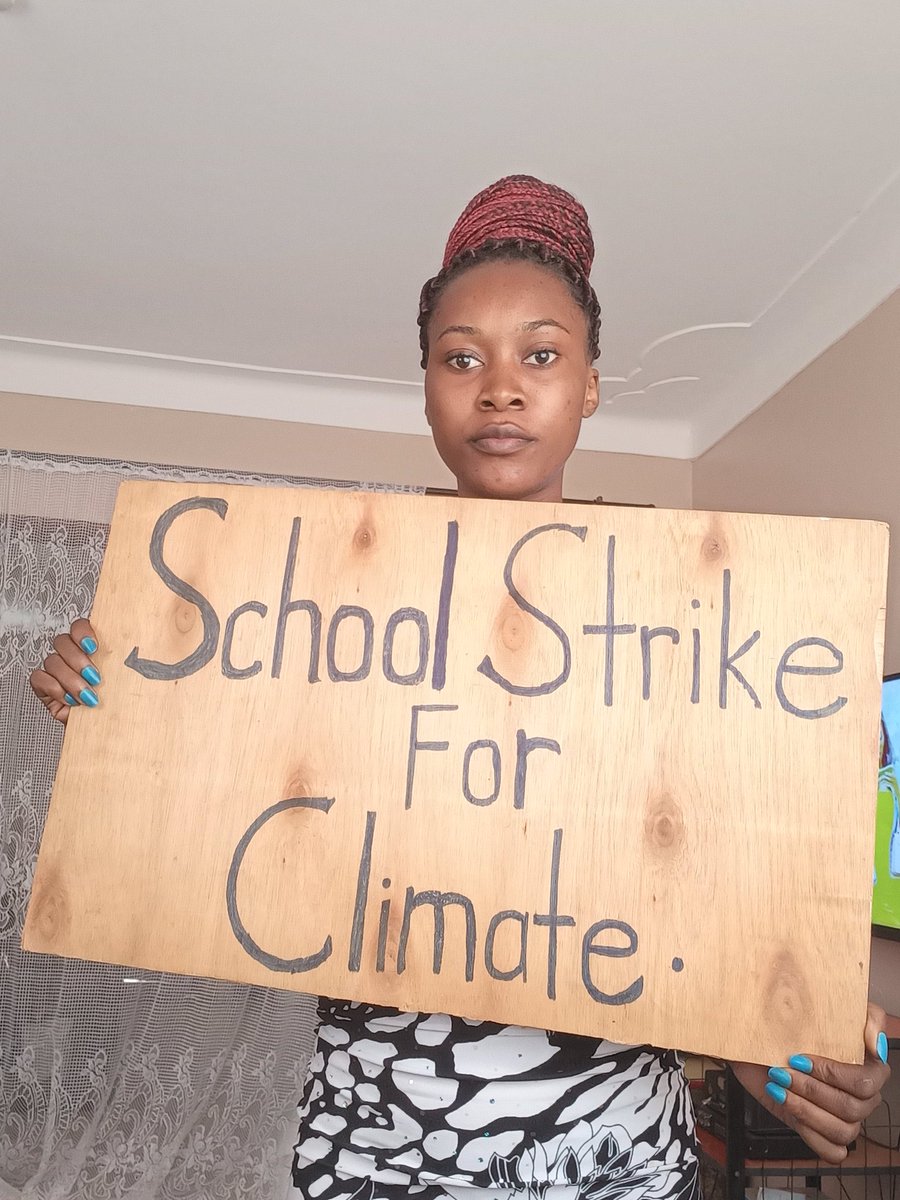 School Strike
For
Climate.